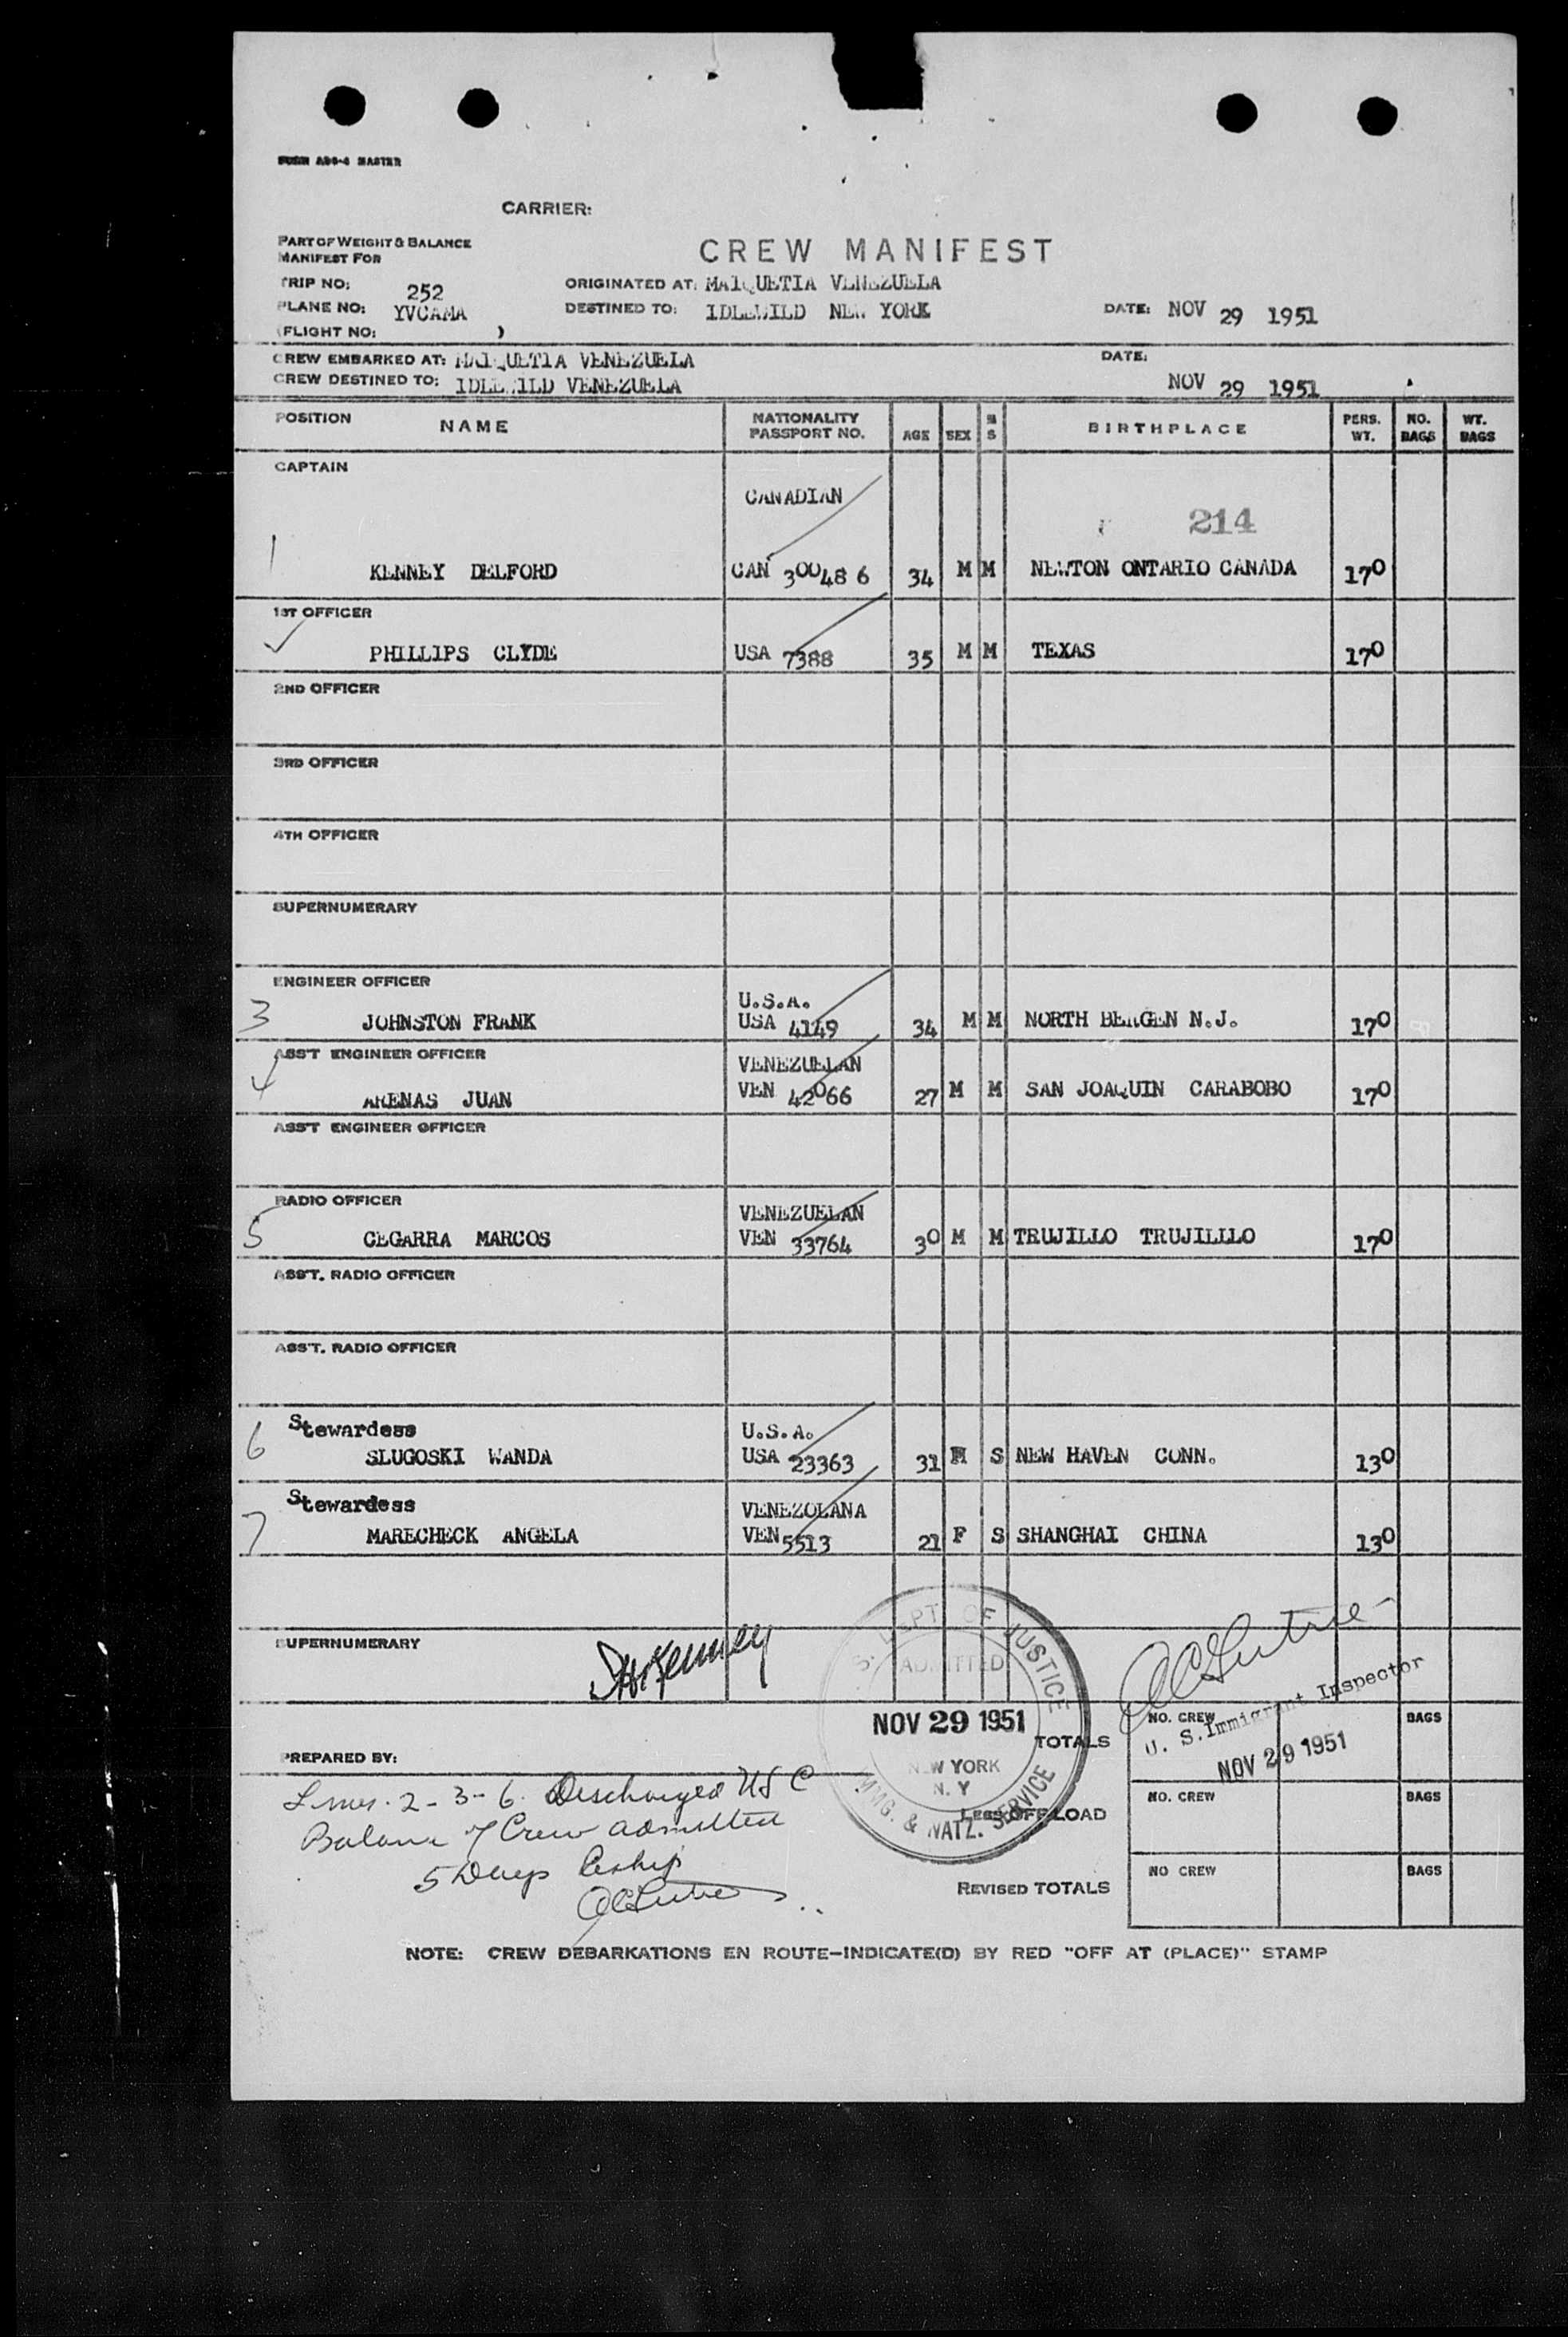 FORM ADS-4 MASTER
CARRIER:
PART OF WEIGHT & BALANCE
MANIFEST FOR
CREW MANIFEST
TRIP NO: 252
ORIGINATED AT: MAIQUETIA VENEZUELA
PLANE NO: YVCAMA
DESTINED TO: IDLEWILD NEW YORK
DATE: NOV 29 1951
(FLIGHT NO: )
CREW EMBARKED AT: MAIQUETIA VENEZUELA
DATE:
CREW DESTINED TO: IDLEWILD VENEZUELA
NOV 29 1951
POSITION NAME NATIONALITY PASSPORT NO. AGE SEX M S BIRTHPLACE PERS. WT. NO. BAGS WT. BAGS
CAPTAIN
CANADIAN
214
1 KENNEY DELFORD CAN 300486 34 M M NEWTON ONTARIO CANADA 170
1ST OFFICER
PHILLIPS CLYDE USA 7388 35 M M TEXAS 170
2ND OFFICER
3RD OFFICER
4TH OFFICER
SUPERNUMERARY
ENGINEER OFFICER
U.S.A.
3 JOHNSTON FRANK USA 4149 34 M M NORTH BERGEN N.J. 170
ASS'T ENGINEER OFFICER
VENEZUELAN
4 ARENAS JUAN VEN 42066 27 M M SAN JOAQUIN CARABOBO 170
ASS'T ENGINEER OFFICER
RADIO OFFICER
VENEZUELAN
5 CEGARRA MARCOS VEN 33764 30 M M TRUJILLO TRUJILLLO 170
ASS'T. RADIO OFFICER
ASS'T. RADIO OFFICER
Stewardess
U.S.A.
6 SLUGOSKI WANDA USA 23363 31 S NEW HAVEN CONN. 130
Stewardess
VENEZOLANA
7 MARECHECK ANGELA VEN 5513 21 F S SHANGHAI CHINA 130
SUPERNUMERARY
DHKenney
S. DEPT OF JUSTICE
ADMITTED
NOV 29 1951
NEW YORK
N. Y
IMMG. & NATZ. SERVICE
U. S. Immigrant Inspector
NOV 29 1951
TOTALS
NO. CREW BAGS
PREPARED BY:
Lines 2-3-6 Discharged US C
Balance of Crew admitted
5 Days
LESS OFF LOAD
NO. CREW BAGS
REVISED TOTALS
NO CREW BAGS
NOTE: CREW DEBARKATIONS EN ROUTE-INDICATE(D) BY RED "OFF AT (PLACE)" STAMP